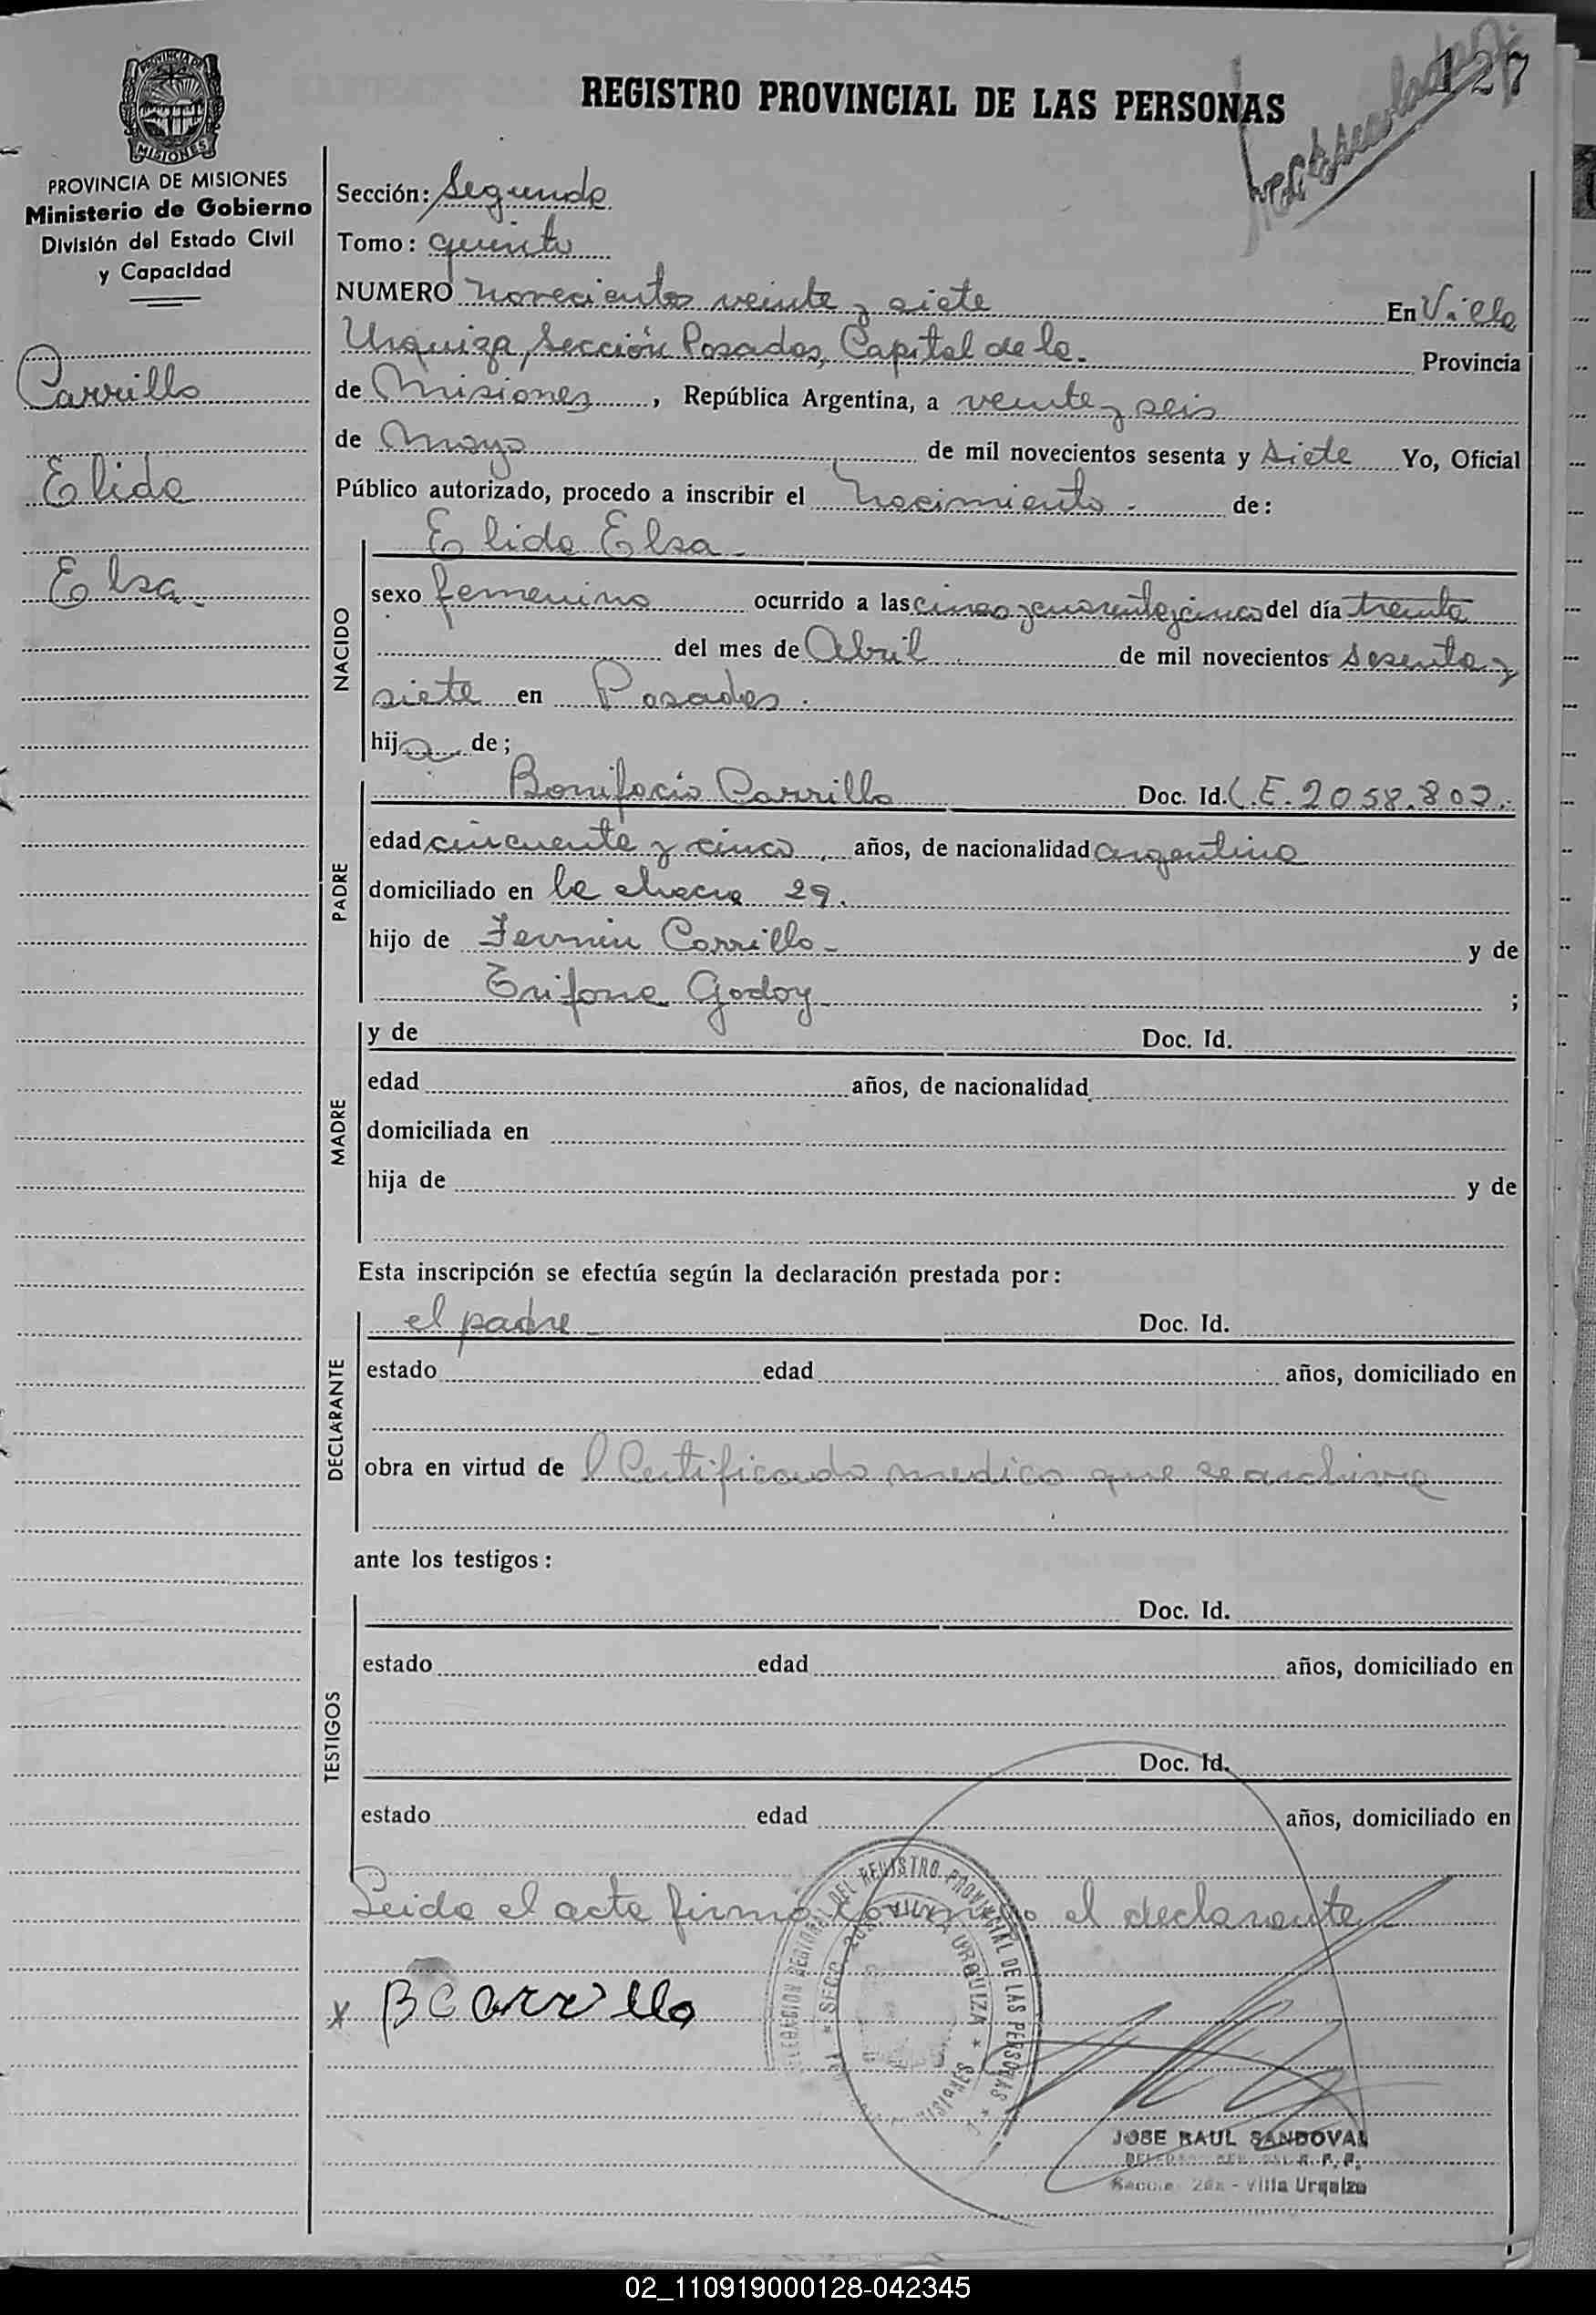 127
REGISTRO PROVINCIAL DE LAS PERSONAS
PROVINCIA DE
MISIONES
PROVINCIA DE MISIONES
Ministerio de Gobierno
División del Estado Civil
y Capacidad
Carrillo
Elida
Elsa.
Sección: Segunda
Tomo: quinto
NUMERO novecientos veinte y siete En Villa
Urquiza, Sección Posadas, Capital de la. Provincia
de Misiones, República Argentina, a veinte y seis
de Mayo de mil novecientos sesenta y siete Yo, Oficial
Público autorizado, procedo a inscribir el nacimiento. de:
Elida Elsa.
NACIDO
sexo femenino ocurrido a las cinco y cuarenta y cinco del día treinta
del mes de Abril de mil novecientos sesenta y
siete en Posadas.
hija de;
PADRE
Bonifacio Carrillo Doc. Id. L.E. 2058.802.
edad cincuenta y cinco, años, de nacionalidad argentina
domiciliado en la chacra 29.
hijo de Fermin Carrillo - y de
Trifona Godoy ;
MADRE
y de Doc. Id.
edad años, de nacionalidad
domiciliada en
hija de y de
Esta inscripción se efectúa según la declaración prestada por:
DECLARANTE
el padre Doc. Id.
estado edad años, domiciliado en
obra en virtud de l Certificando medico que se archiva
ante los testigos:
TESTIGOS
Doc. Id.
estado edad años, domiciliado en
Doc. Id.
estado edad años, domiciliado en
Leida el acta firma conmigo el declarante
x BCarrillo
DEL REGISTRO PROVINCIAL DE LAS PERSONAS
VILLA URQUIZA
JOSE RAUL SANDOVAL
R. P. P.
2da - Villa Urquiza
02_110919000128-042345